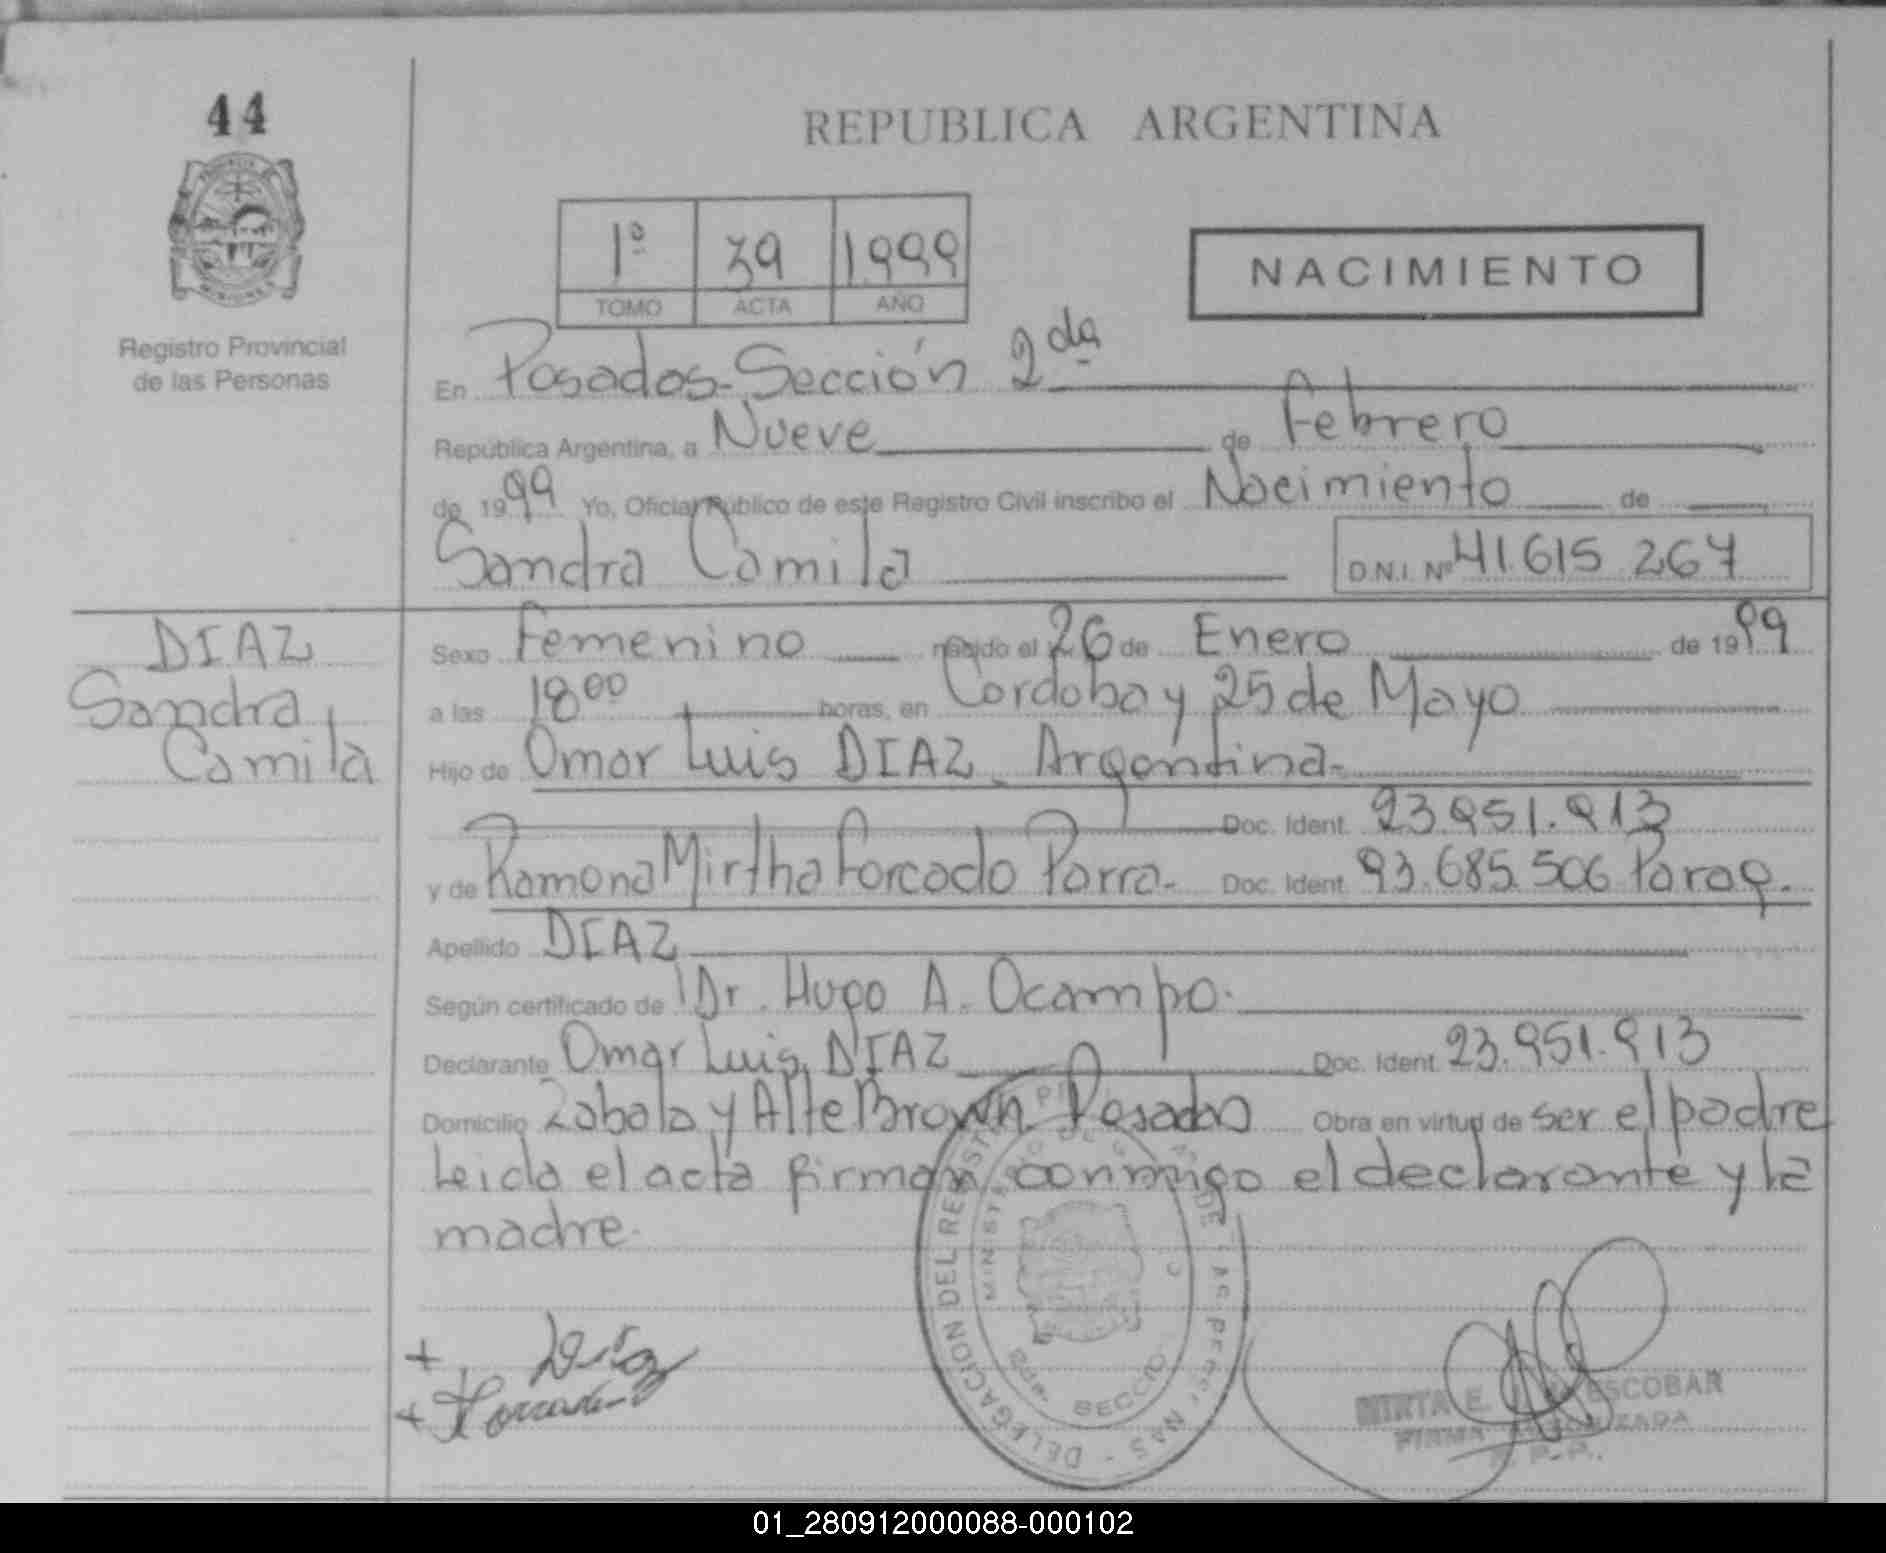 44
REPUBLICA ARGENTINA
1º 39 1999
TOMO ACTA AÑO
NACIMIENTO
Registro Provincial
de las Personas
En Posadas-Sección 2da
República Argentina, a Nueve de Febrero
de 1999 Yo, Oficial Público de este Registro Civil inscribo el Nacimiento de
Sandra Camila D.N.I. Nº 41.615.267
DIAZ
Sandra
Camila
Sexo Femenino nacido el 26 de Enero de 1999
a las 18 00 horas, en Cordoba y 25 de Mayo
Hijo de Omar Luis DIAZ - Argentina-
Doc. Ident. 23.951.913
y de Ramona Mirtha Forcado Parra- Doc. Ident. 93.685.506 Parag.
Apellido DIAZ
Según certificado de Dr. Hugo A. Ocampo.
Declarante Omar Luis DIAZ Doc. Ident. 23.951.913
Domicilio Zabala y Alte Brown Posadas Obra en virtud de ser el padre
Leida el acta firman conmigo el declarante y la
madre.
DELEGACION DEL
ESCOBAR
FIRMA
01_280912000088-000102